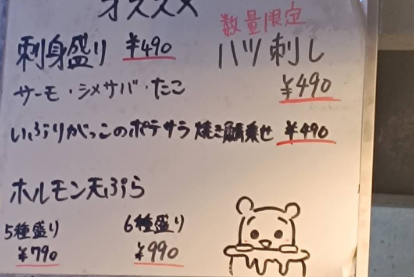 オススメ
数量限定
刺身盛り ¥490
ハツ刺し
サーモ・シメサバ・たこ
¥490
いぶりがっこのポテサラ 焼き鯖乗せ ¥490
ホルモン天ぷら
5種盛り
6種盛り
¥790
¥990